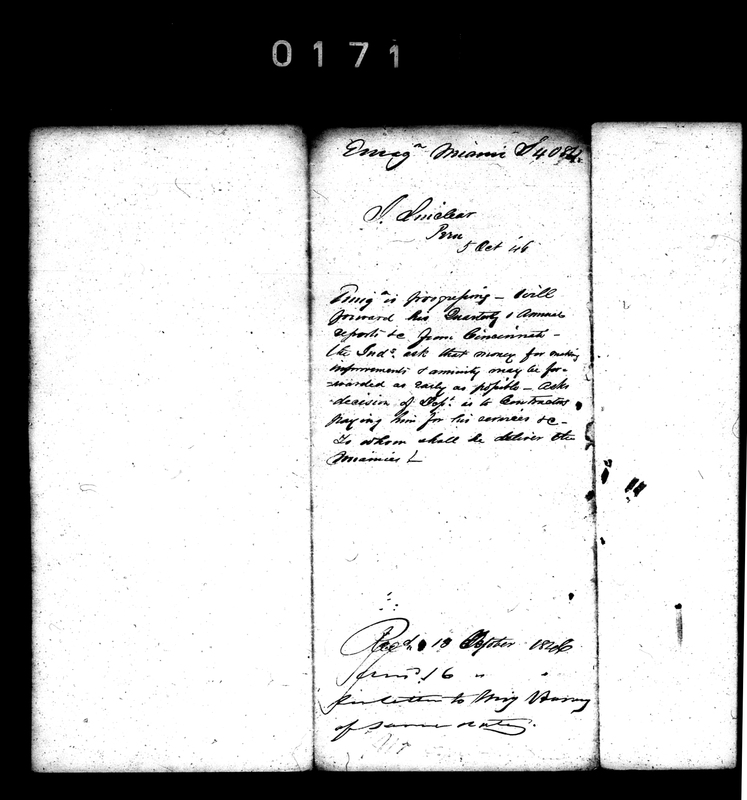 0171
Emig.n Miami S 4084.
J. Sinclear
Peru
5 Oct 46
Emig.n is progressing - Will
forward his Quarterly & Annual
reports &c from Cincinnati -
the Inds. ask that money for making
improvements & annuity may be for-
warded as early as possible - Asks
decision of Dept. as to Contractors
paying him for his services &c -
To whom shall he deliver the
Miamies
Recd. 13 October 1846
16 "  "
See letter to Maj Harvey
of same date.